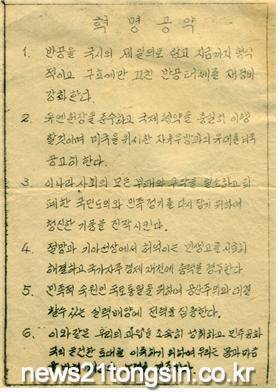 혁명공약
1. 반공을 국시의 제일의로 삼고 지금까지 형식
적이고 구호에만 그친 반공태세를 재정비
강화한다.
2. 유엔헌장을 준수하고 국제협약을 충실히 이행
할것이며 미국을 위시한 자유우방과의 유대를 더욱
공고히 한다.
3. 이나라 사회의 모든 부패와 구악을 일소하고 퇴
폐한 국민도의와 민족정기를 다시 잡기 위하여
청신한 기풍을 진작시킨다.
4. 절망과 기아선상에서 허덕이는 민생고를 시급히
해결하고 국가자주경제 재건에 총력을 경주한다
5. 민족의 숙원인 국토통일을 위하여 공산주의와 대결
할수 있는 실력배양에 전력을 집중한다.
6. 이와같은 우리의 과업을 조속히 성취하고 민주공화
국의 굳건한 토대를 이룩하기 위하여 우리는 몸과 마음
news21tongsin.co.kr